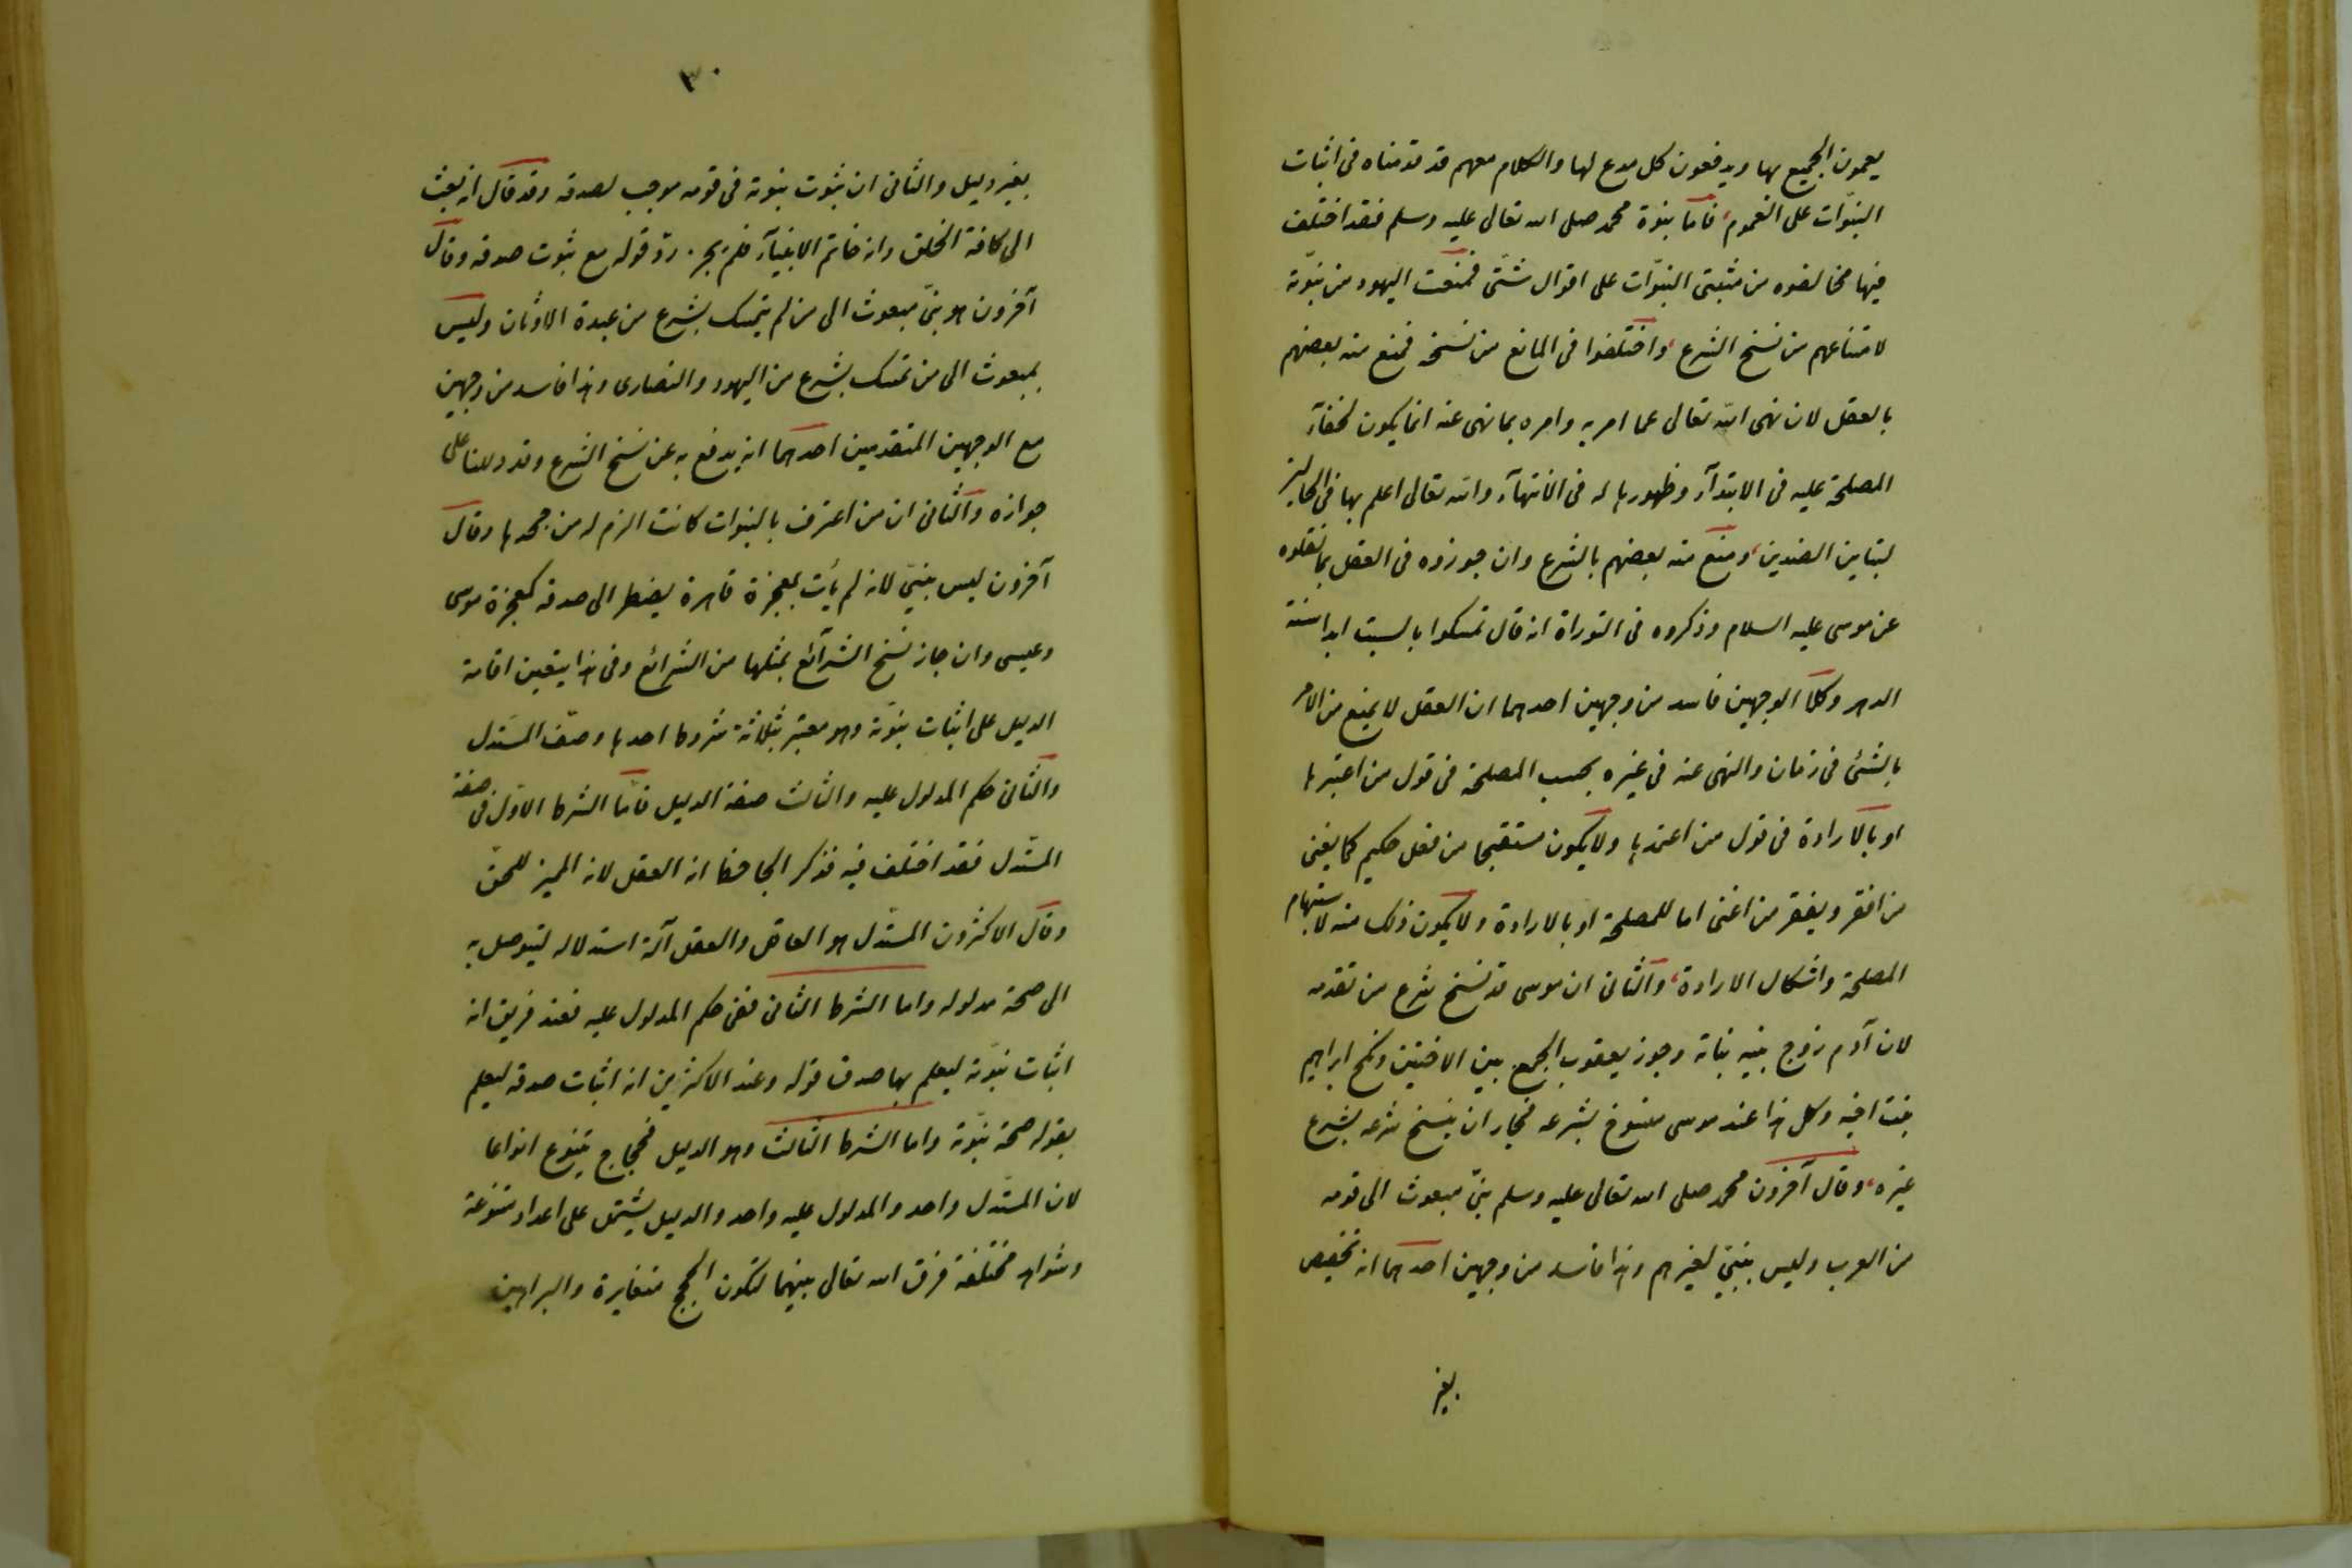 يعمون الجميع بها ويدفعون كل مدع لها والكلام معهم قد قدمناه فى اثبات
النبوّات على العموم، فاما نبوة محمد صلى الله تعالى عليه وسلم فقد اختلف
فيها مخالفوه من مثبتى النبوّات على اقوال شتّى فمنعت اليهود من نبوّته
لامتناعهم من نسخ الشرع، واختلفوا فى المانع من نسخه فمنع منه بعضهم
بالعقل لان نهى الله تعالى عما امر به وامره بما نهى عنه انما يكون لخفآء
المصلحة عليه فى الابتدآء وظهورها له فى الانتهآء والله تعالى اعلم بها فى الحالين
لتباين الضدين، ومنع منه بعضهم بالشرع وان جوزوه فى العقل بما نقلوه
عن موسى عليه السلام وذكروه فى التوراة انه قال تمسكوا بالسبت ابدا سنة
الدهر وكلا الوجهين فاسد من وجهين احدهما ان العقل لا يمنع من الامر
بالشئ فى زمان والنهى عنه فى غيره بحسب المصلحة فى قول من اعتبرها
او بالارادة فى قول من اعتمدها ولا يكون مستقبحا من فعل حكيم كما يغنى
من افقر ويفقر من اغنى اما للمصلحة او بالارادة ولا يكون ذلك منه لاستبهام
المصلحة واشكال الارادة، والثانى ان موسى قد نسخ شرع من تقدمه
لان آدم زوج بنيه بناته وجوز يعقوب الجمع بين الاختين ونكح ابراهيم
بنت اخيه وكل هذا عند موسى منسوخ بشرعه فجاز ان ينسخ شرعه بشرع
غيره، وقال آخرون محمد صلى الله تعالى عليه وسلم نبىّ مبعوث الى قومه
من العرب وليس بنبىّ لغيرهم وهذا فاسد من وجهين احدهما انه تخصيص
بغير
٣٠
بغير دليل والثانى ان ثبوت نبوته فى قومه موجب لصدقه وقد قال انه بعث
الى كافة الخلق وانه خاتم الانبيآء فلم يجز رد قوله مع ثبوت صدقه وقال
آخرون هو نبىّ مبعوث الى من لم يتمسك بشرع من عبدة الاوثان وليس
بمبعوث الى من تمسك بشرع من اليهود والنصارى وهذا فاسد من وجهين
مع الوجهين المتقدمين احدهما انه يدفع به عن نسخ الشرع وقد دللنا على
جوازه والثانى ان من اعترف بالنبوات كانت الزم له من جحدها وقال
آخرون ليس بنبىّ لانه لم يأت بمعجزة قاهرة يضطر الى صدقه كمعجزة موسى
وعيسى وان جاز نسخ الشرآئع بمثلها من الشرائع وفى هذا يتعين اقامة
الدليل على اثبات نبوّته وهو معتبر بثلاثة شروط احدها وصف المستدل
والثانى حكم المدلول عليه والثالث صفة الدليل فامّا الشرط الاوّل فى صفة
المستدل فقد اختلف فيه فذكر الجاحظ انه العقل لانه المميز للحقّ
وقال الاكثرون المستدل هو العاقل والعقل آلة استدلاله ليتوصل به
الى صحة مدلوله واما الشرط الثانى ففى حكم المدلول عليه فعند فريق انه
اثبات نبوّته ليعلم بها صدق قوله وعند الاكثرين انه اثبات صدقه ليعلم
بقوله صحة نبوّته واما الشرط الثالث وهو الدليل فحجاج يتنوع انواعا
لان المستدل واحد والمدلول عليه واحد والدليل يشتمل على اعداد متنوعة
وشواهد مختلفة فرق الله تعالى بينهما لتكون الحجج متغايرة والبراهين